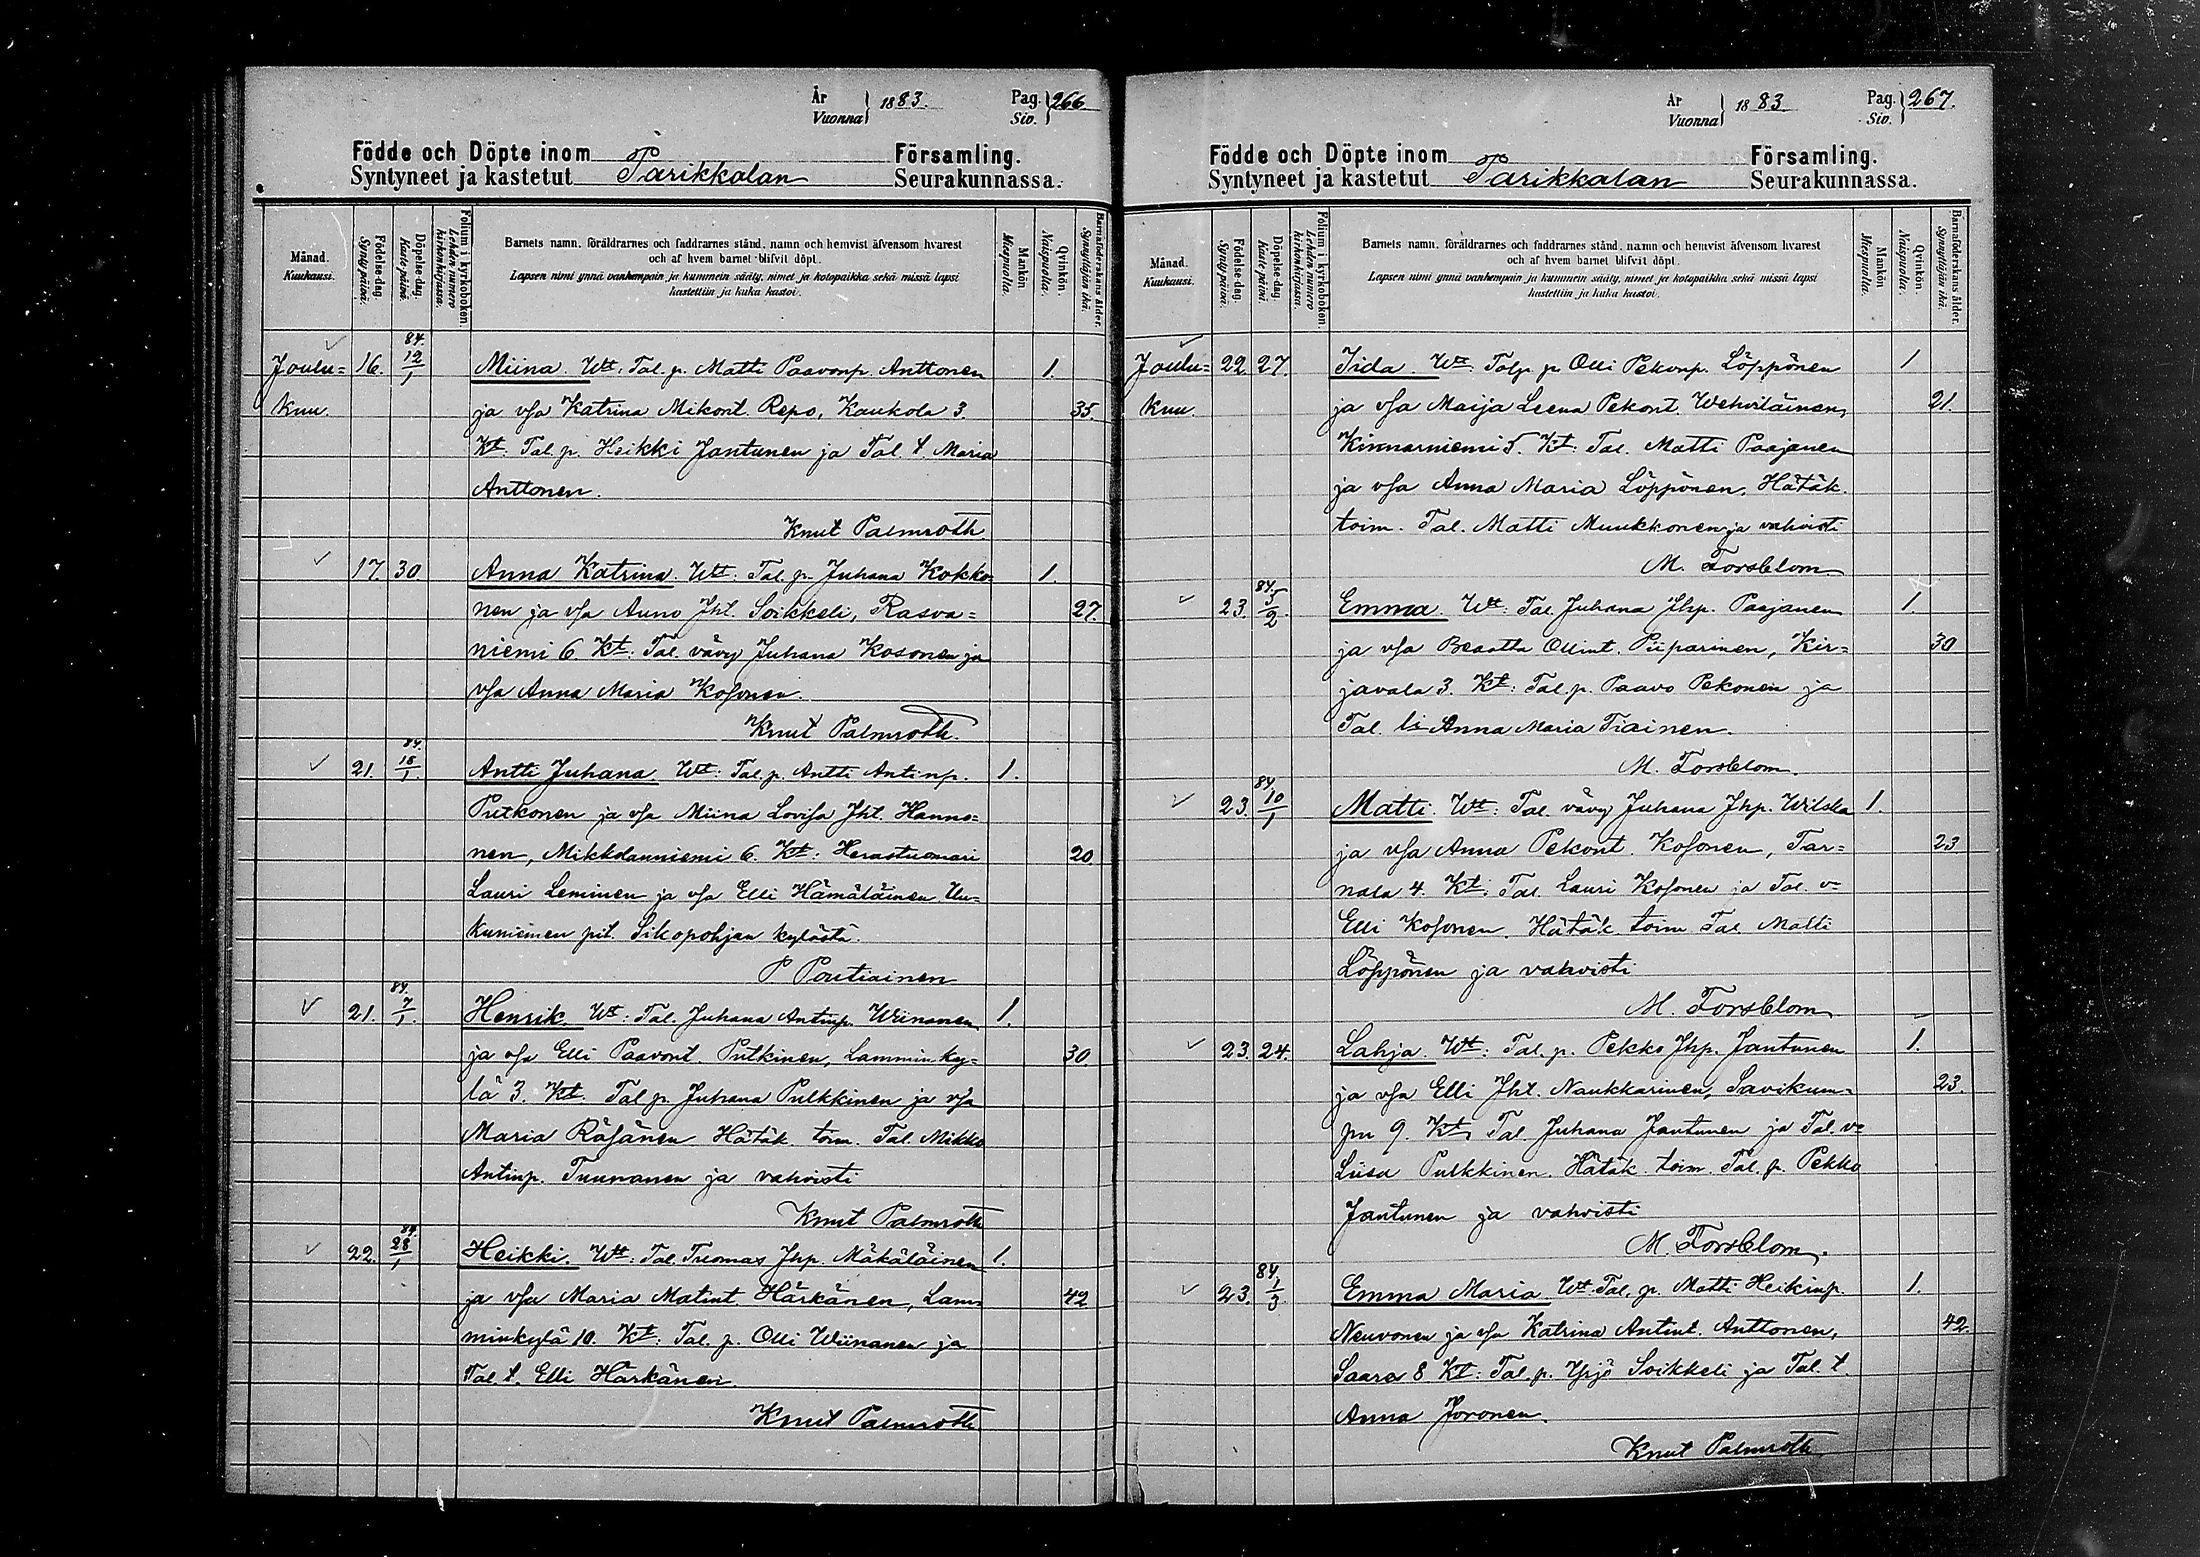 År
Vuonna } 1883.
Pag.
Siv. } 266
Födde och Döpte inom
Syntyneet ja kastetut
Parikkalan
Församling.
Seurakunnassa.
Månad.
Kuukausi.
Födelse-dag.
Synty päivä.
Döpelse-dag.
Kaste päivä.
Folium i kyrkoboken.
Lehden numero kirkonkirjassa.
Barnets namn, föräldrarnes och faddrarnes stånd, namn och hemvist äfvensom hvarest
och af hvem barnet blifvit döpt.
Lapsen nimi ynnä vanhempain ja kummein sääty, nimet ja kotopaikka sekä missä lapsi
kastettiin ja kuka kastoi.
Mankön
Miespuolia.
Qvinkön.
Naispuolia.
Barnaföderskans ålder.
Synnyttäjän ikä.
84.
Joulu= 16. 12/1 Miina. Wtt: Tal. p. Matti Paavonp. Anttonen 1.
kuu. ja vsa Katrina Mikont. Repo, Kaukola 3. 35
Kt: Tal. p. Heikki Jantunen ja Tal. t. Maria
Anttonen.
Knut Palmroth
17 30 Anna Katrina. Wtt: Tal. p. Juhana Kokko= 1.
nen ja vsa Anna Jht. Soikkeli, Rasva= 27.
niemi 6. Kt: Tal. vävy Juhana Kosonen ja
vsa Anna Maria Kosonen.
Knut Palmroth.
84.
21. 18/1 Antti Juhana. Wtt: Tal. p. Antti Antinp. 1.
Putkonen ja vsa Miina Lovisa Jht. Hanno=
nen, Mikkolanniemi 6. Kt: Herastuomari 20
Lauri Leminen ja vsa Elli Hämäläinen Uu=
kuniemen pit. Sikopohjan kylästä.
P Poutiainen
84.
21. 7/1. Henrik. Wt: Tal. Juhana Antinp. Wiinanen 1.
ja vsa Elli Paavont. Putkinen, Lamminky= 30.
lä 3. Kt. Tal p. Juhana Pulkkinen ja vsa
Maria Räsänen Hätäk. toim. Tal. Mikko
Antinp. Tuunanen ja vahvisti
Knut Palmroth
84.
22. 28/1 Heikki. Wtt: Tal. Tuomas Jhp. Mäkäläinen 1.
ja vsa Maria Matint. Härkänen, Lam= 42
minkylä 10. Kt: Tal. p. Olli Wiinanen ja
Tal. t. Elli Härkänen.
Knut Palmroth
År
Vuonna } 1883
Pag.
Siv. } 267.
Födde och Döpte inom
Syntyneet ja kastetut
Parikkalan
Församling.
Seurakunnassa.
Månad.
Kuukausi.
Födelse-dag.
Synty päivä.
Döpelse-dag.
Kaste päivä.
Folium i kyrkoboken.
Lehden numero kirkonkirjassa.
Barnets namn, föräldrarnes och faddrarnes stånd, namn och hemvist äfvensom hvarest
och af hvem barnet blifvit döpt.
Lapsen nimi ynnä vanhempain ja kummein sääty, nimet ja kotopaikka sekä missä lapsi
kastettiin ja kuka kastoi.
Mankön
Miespuolia.
Qvinkön.
Naispuolia.
Barnaföderskans ålder.
Synnyttäjän ikä.
Joulu= 22. 27. Iida. Wtt: Talp. p. Olli Pekonp. Löppönen 1
kuu. ja vsa Maija Leena Pekont. Wehviläinen, 21.
Kinnarniemi 5. Kt: Tal. Matti Paajanen
ja vsa Anna Maria Löppönen. Hätäk.
toim. Tal. Matti Muukkonen ja vahvisti
M. Forsblom.
84.
23. 5/2 Emma. Wtt: Tal. Juhana Jhp. Paajanen 1.
ja vsa Beaatta Ollint. Piiparinen, Kir= 30
javala 3. Kt: Tal. p. Paavo Pekonen ja
Tal. ls Anna Maria Tiainen.
M. Forsblom.
84.
23. 10/1 Matti. Wtt: Tal. vävy Juhana Jhp. Wilska 1.
ja vsa Anna Pekont. Kosonen, Tar= 23
nala 4. Kt: Tal. Lauri Kosonen ja Tal. v=
Elli Kosonen. Hätäk. toim Tal. Matti
Löppönen ja vahvisti
M. Forsblom.
23. 24. Lahja. Wtt: Tal. p. Pekko Jhp. Jantunen 1.
ja vsa Elli Jht. Naukkarinen, Savikum= 23.
pu 9. Kt: Tal. Juhana Jantunen ja Tal. v=
Liisa Pulkkinen. Hätäk. toim. Tal. p. Pekko
Jantunen ja vahvisti
M. Forsblom.
84.
23. 1/3 Emma Maria. Wtt. Tal. p. Matti Heikinp. 1.
Neuvonen ja vsa Katrina Antint. Anttonen, 42.
Saara 8. Kt: Tal. p. Yrjö Soikkeli ja Tal. t.
Anna Joronen.
Knut Palmroth